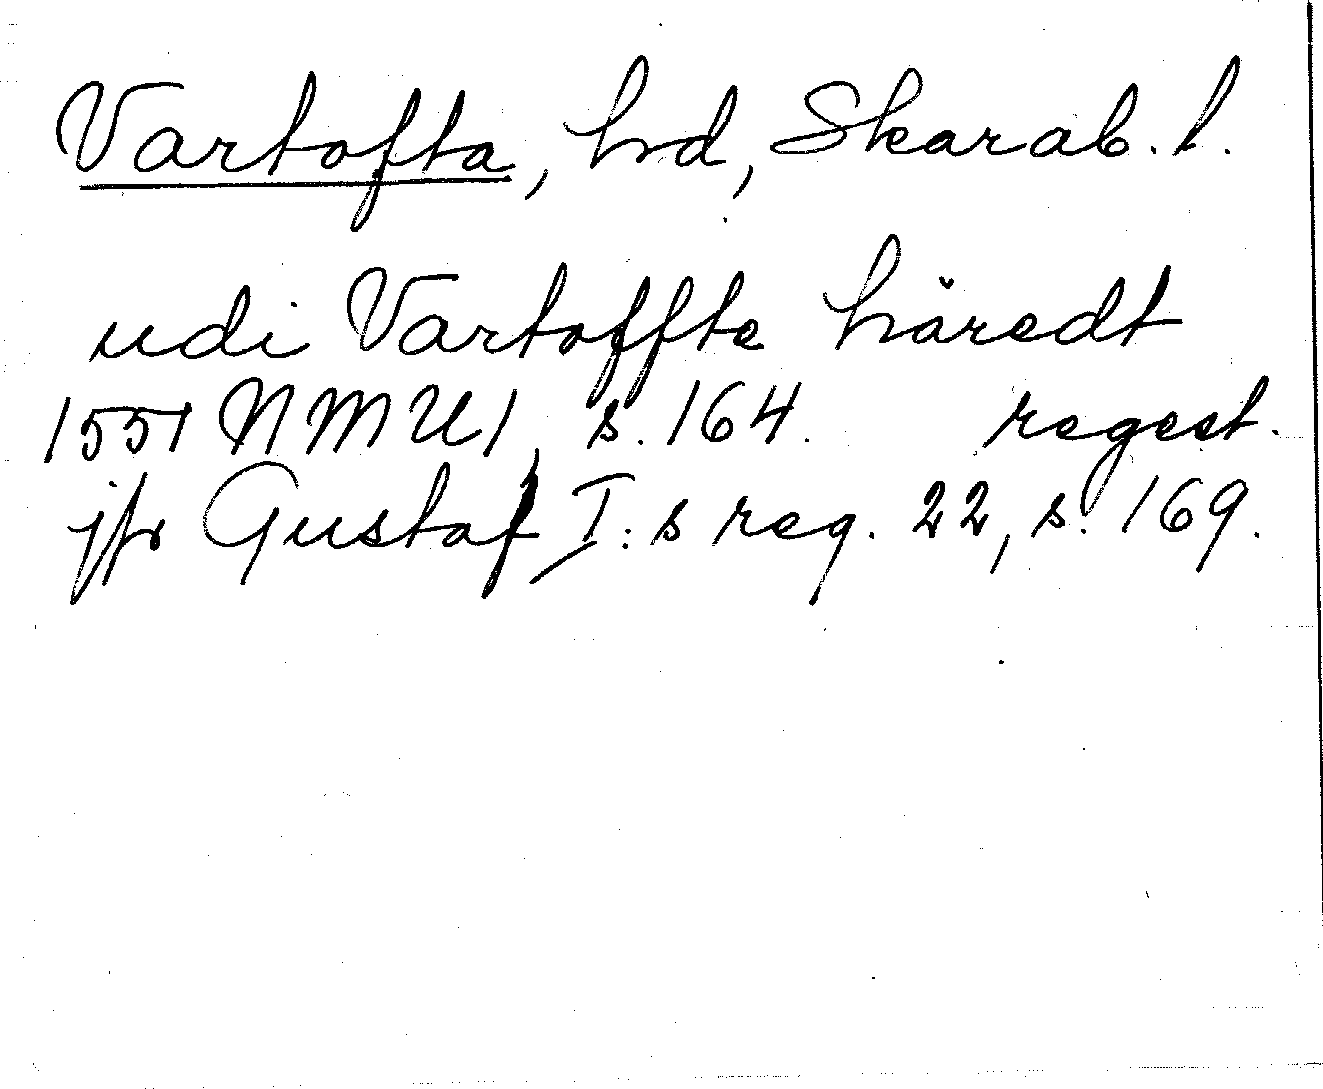 Vartofta, hd, Skarab. l.
udi Vartoffte häredt
1551 NMU1, s. 164. regest.
jfr Gustaf I:s reg. 22, s. 169.